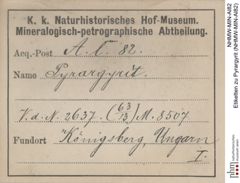 K. k. Naturhistorisches Hof-Museum.
Mineralogisch-petrographische Abtheilung.
Acq.-Post A. C. 82.
Name Pyrargyrit.
V. d. N. 2637. (63/13) M. 8507.
Fundort Königsberg, Ungarn
I.
NHMW-MIN-A682
Etiketten zu Pyrargyrit (NHMW-MIN-A682)
nhm